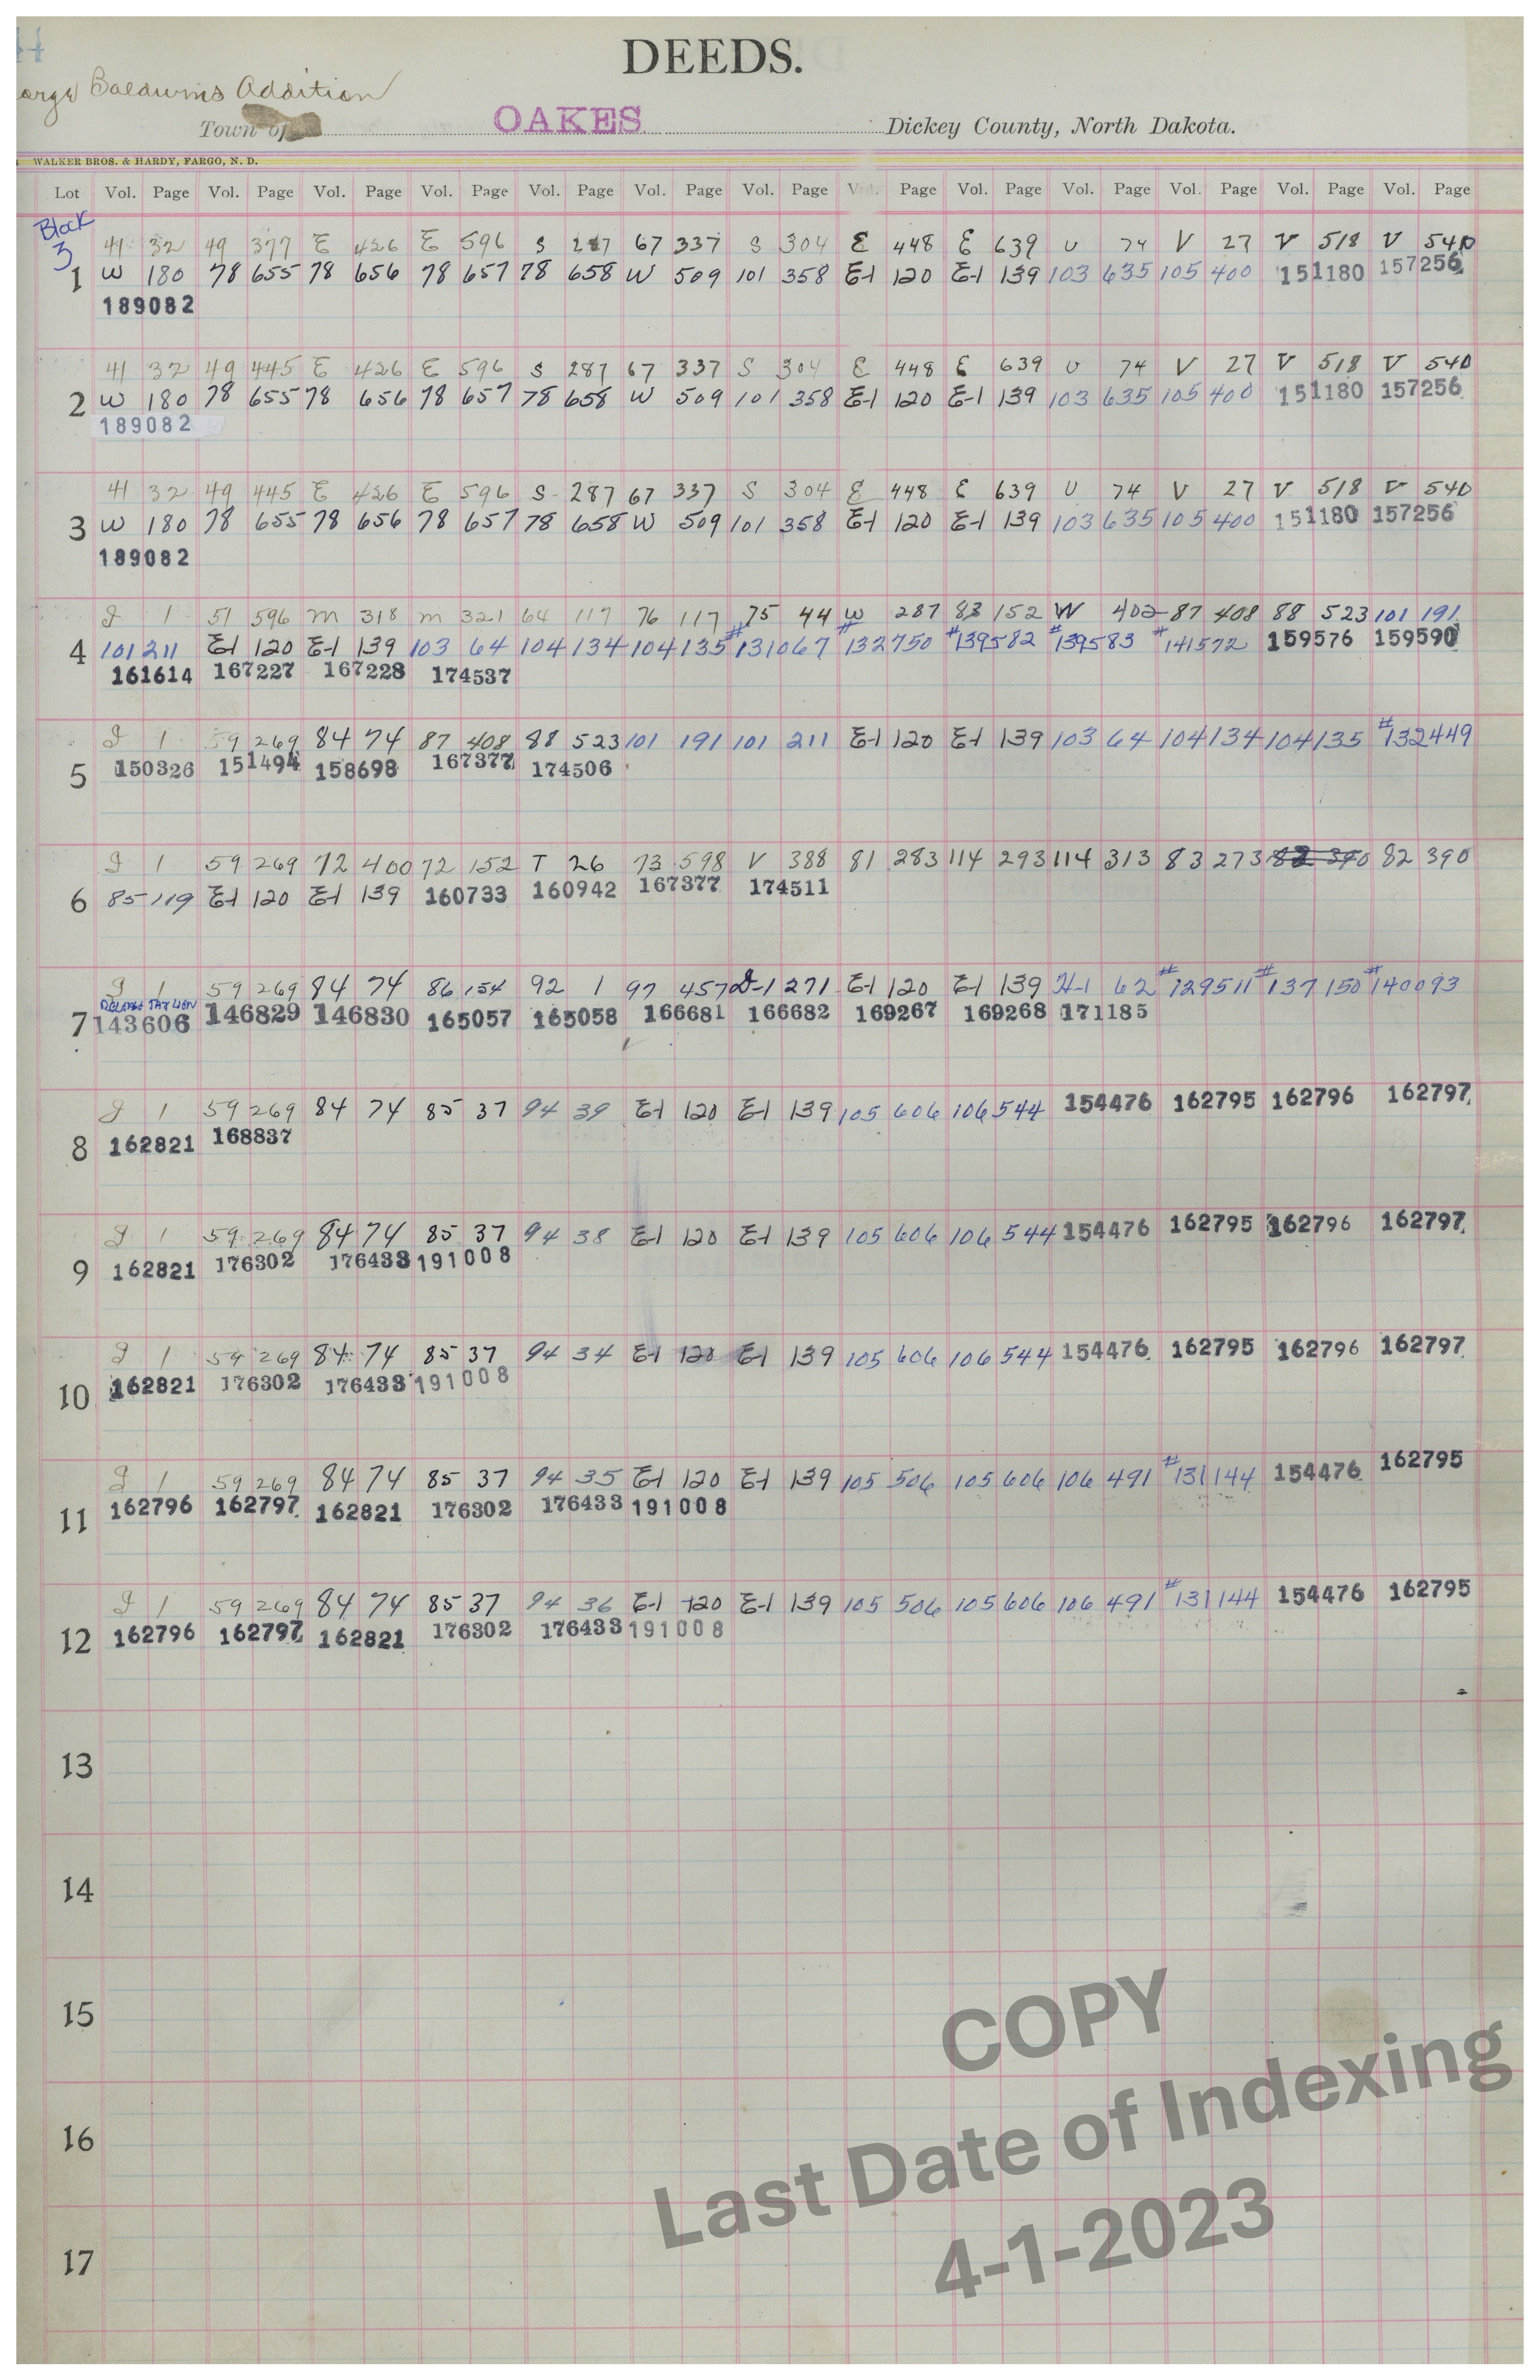 44
DEEDS.
Baldwins Addition
Town of OAKES Dickey County, North Dakota.
WALKER BROS. & HARDY, FARGO, N. D.
Lot Vol. Page Vol. Page Vol. Page Vol. Page Vol. Page Vol. Page Vol. Page Vol. Page Vol. Page Vol. Page Vol. Page Vol. Page Vol. Page
Block
3
41 32 49 377 E 426 E 596 S 287 67 337 S 304 E 448 E 639 U 74 V 27 V 518 V 540
1 W 180 78 655 78 656 78 657 78 658 W 509 101 358 E-1 120 E-1 139 103 635 105 400 151180 157256
189082
41 32 49 445 E 426 E 596 S 287 67 337 S 304 E 448 E 639 U 74 V 27 V 518 V 540
2 W 180 78 655 78 656 78 657 78 658 W 509 101 358 E-1 120 E-1 139 103 635 105 400 151180 157256
189082
41 32 49 445 E 426 E 596 S 287 67 337 S 304 E 448 E 639 U 74 V 27 V 518 V 540
3 W 180 78 655 78 656 78 657 78 658 W 509 101 358 E-1 120 E-1 139 103 635 105 400 151180 157256
189082
J 1 51 596 M 318 M 321 64 117 76 117 75 44 W 287 83 152 W 402 87 408 88 523 101 191
4 101 211 E-1 120 E-1 139 103 64 104 134 104 135 #131067 #132750 #139582 #139583 #141572 159576 159590
161614 167227 167228 174537
J 1 59 269 84 74 87 408 88 523 101 191 101 211 E-1 120 E-1 139 103 64 104 134 104 135 #132449
5 150326 151494 158698 167377 174506
J 1 59 269 72 400 72 152 T 26 73 598 V 388 81 283 114 293 114 313 83 273 82 390 82 390
6 85 119 E-1 120 E-1 139 160733 160942 167377 174511
J 1 59 269 84 74 86 154 92 1 97 457 J-1 271 E-1 120 E-1 139 H-1 62 #129511 #137150 #140093
RELEASE TAX LIEN
7 143606 146829 146830 165057 165058 166681 166682 169267 169268 171185
J 1 59 269 84 74 85 37 94 39 E-1 120 E-1 139 105 606 106 544 154476 162795 162796 162797
8 162821 168837
J 1 59 269 84 74 85 37 94 38 E-1 120 E-1 139 105 606 106 544 154476 162795 162796 162797
9 162821 176302 176433 191008
J 1 59 269 84 74 85 37 94 34 E-1 120 E-1 139 105 606 106 544 154476 162795 162796 162797
10 162821 176302 176433 191008
J 1 59 269 84 74 85 37 94 35 E-1 120 E-1 139 105 506 105 606 106 491 #131144 154476 162795
11 162796 162797 162821 176302 176433 191008
J 1 59 269 84 74 85 37 94 36 E-1 120 E-1 139 105 506 105 606 106 491 #131144 154476 162795
12 162796 162797 162821 176302 176433 191008
13
14
15
16
17
COPY
Last Date of Indexing
4-1-2023